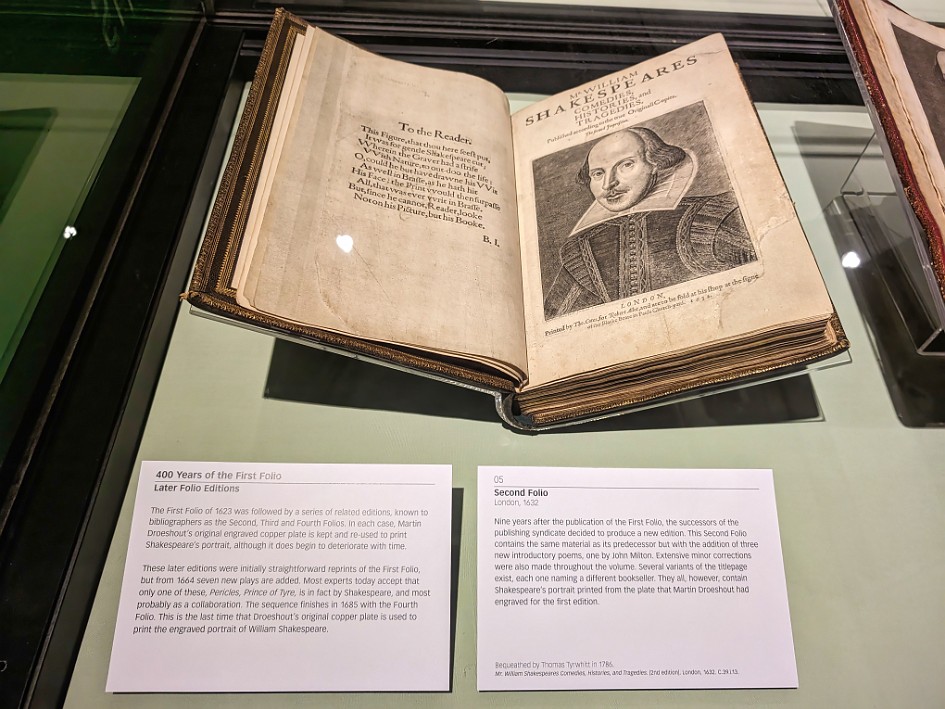 To the Reader.
This Figure, that thou here seest put,
It was for gentle Shakespeare cut,
Wherein the Graver had a strife
VVith Nature, to out-doo the life:
O, could he but have drawne his VVit
As well in Brasse, as he hath hit
His Face; the Print vvould then surpasse
All, that was ever vvrit in Brasse.
But, since he cannot, Reader, looke
Not on his Picture, but his Booke.
B. I.
Mr. WILLIAM
SHAKESPEARES
COMEDIES,
HISTORIES, and
TRAGEDIES.
Published according to the true Originall Copies.
LONDON,
Printed by Tho. Cotes, for Robert Allot, and are to be sold at his shop at the signe
400 Years of the First Folio
Later Folio Editions
The First Folio of 1623 was followed by a series of related editions, known to
bibliographers as the Second, Third and Fourth Folios. In each case, Martin
Droeshout's original engraved copper plate is kept and re-used to print
Shakespeare's portrait, although it does begin to deteriorate with time.
These later editions were initially straightforward reprints of the First Folio,
but from 1664 seven new plays are added. Most experts today accept that
only one of these, Pericles, Prince of Tyre, is in fact by Shakespeare, and most
probably as a collaboration. The sequence finishes in 1685 with the Fourth
Folio. This is the last time that Droeshout's original copper plate is used to
print the engraved portrait of William Shakespeare.
05
Second Folio
London, 1632
Nine years after the publication of the First Folio, the successors of the
publishing syndicate decided to produce a new edition. This Second Folio
contains the same material as its predecessor but with the addition of three
new introductory poems, one by John Milton. Extensive minor corrections
were also made throughout the volume. Several variants of the titlepage
exist, each one naming a different bookseller. They all, however, contain
Shakespeare's portrait printed from the plate that Martin Droeshout had
engraved for the first edition.
Bequeathed by Thomas Tyrwhitt in 1786.
Mr. William Shakespeares Comedies, Histories, and Tragedies. (2nd edition). London, 1632. C.39.i.13.